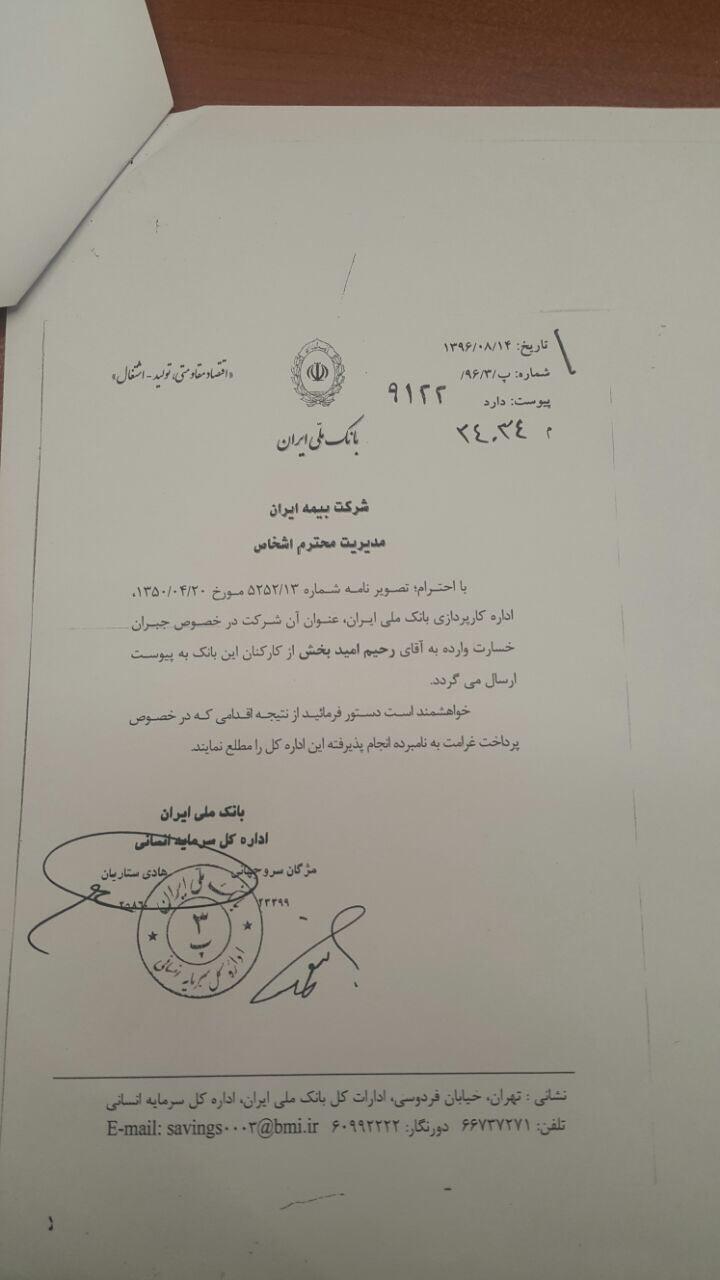 تاریخ: ۱۳۹۶/۰۸/۱۴
شماره: پ/۹۶/۳/
۹۱۲۲
پیوست: دارد
م ۲۴۰۳۴
«اقتصاد مقاومتی، تولید - اشتغال»
بانک ملّی ایران
شرکت بیمه ایران
مدیریت محترم اشخاص
با احترام؛ تصویر نامه شماره ۵۲۵۲/۱۳ مورخ ۱۳۵۰/۰۴/۲۰،
اداره کارپردازی بانک ملی ایران، عنوان آن شرکت در خصوص جبران
خسارت وارده به آقای رحیم امید بخش از کارکنان این بانک به پیوست
ارسال می گردد.
خواهشمند است دستور فرمائید از نتیجه اقدامی که در خصوص
پرداخت غرامت به نامبرده انجام پذیرفته این اداره کل را مطلع نمایند.
بانک ملی ایران
اداره کل سرمایه انسانی
مژگان سروجهانی هادی ستاریان
۲۳۳۹۹
بانک ملّی ایران
۳
پ
اداره کل سرمایه انسانی
نشانی : تهران، خیابان فردوسی، ادارات کل بانک ملی ایران، اداره کل سرمایه انسانی
تلفن: ۶۶۷۳۷۲۷۱ دورنگار: ۶۰۹۹۲۲۲۲ E-mail: savings۰۰۰۳@bmi.ir